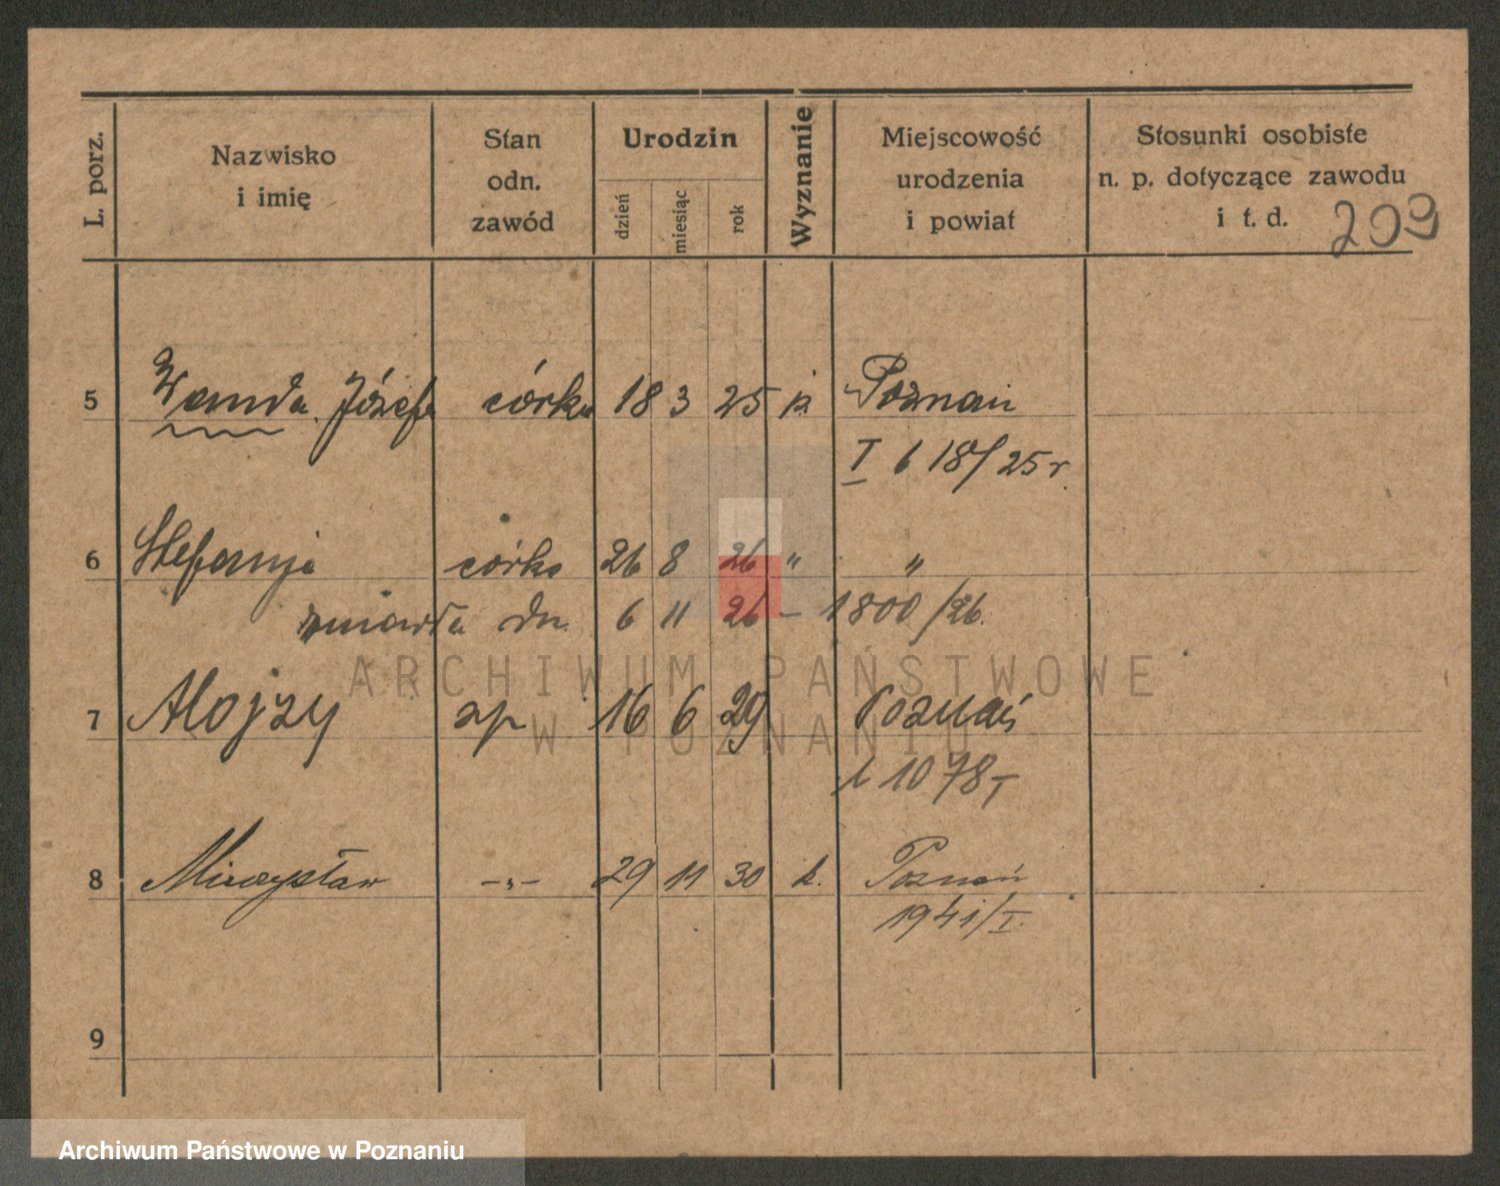 L. porz.
Nazwisko
i imię
Stan
odn.
zawód
Urodzin
dzień
miesiąc
rok
Wyznanie
Miejscowość
urodzenia
i powiat
Stosunki osobiste
n. p. dotyczące zawodu
i t. d.
209
5 Wanda Józefa córka 18 3 25 k. Poznań
I 618/25 r.
6 Stefanja córka 26 8 26 " "
zmarła dn. 6 11 26 – 1800/26.
ARCHIWUM PAŃSTWOWE
7 Alojzy 16 6 29 Poznań
W POZNANIU
1078 I
8 Mieczysław –„– 29 11 30 k. Poznań
1941/I.
9
Archiwum Państwowe w Poznaniu